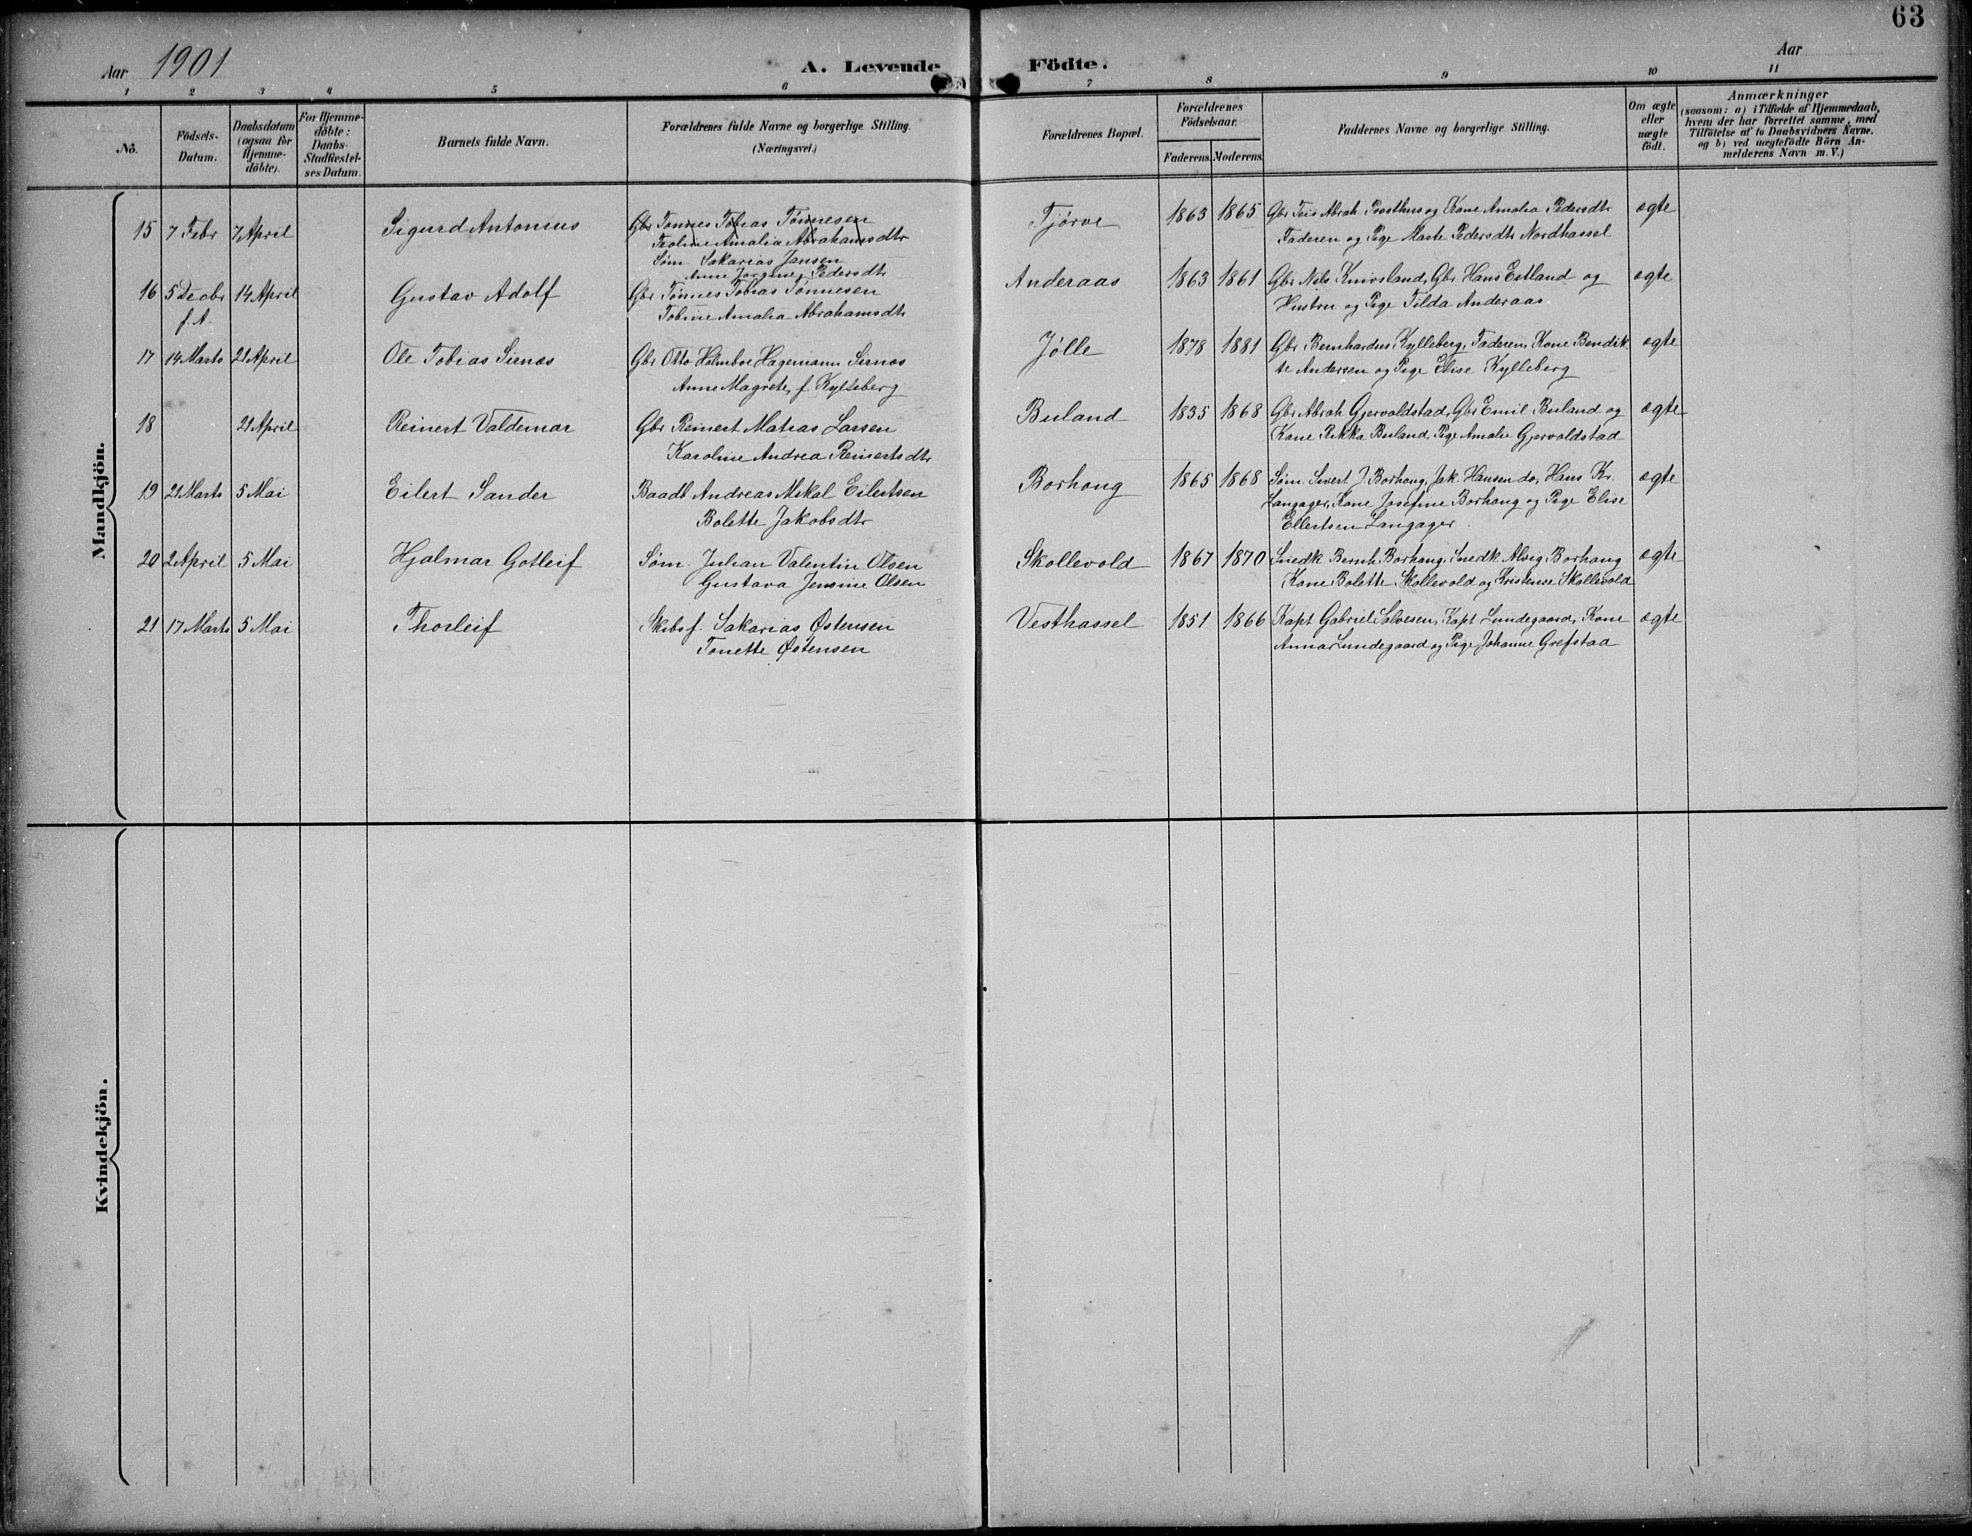 63
Aar 1901 A. Levende Födte. Aar
1 2 3 4 5 6 7 8 9 10 11
No.
Födsels-
Datum.
Daabsdatum
(ogsaa for
Hjemme-
döbte).
For Hjemme-
döbte:
Daabs-
Stadfæstel-
ses Datum.
Barnets fulde Navn.
Forældrenes fulde Navne og borgerlige Stilling.
(Næringsvei.)
Forældrenes Bopæl.
Forældrenes
Födselsaar.
Faderens. Moderens.
Faddernes Navne og borgerlige Stilling.
Om ægte
eller
uægte
födt.
Anmærkninger
(saasom: a) i Tilfælde af Hjemmedaab,
hvem der har forrettet samme, med
Tilföielse af to Daabsvidners Navne.
og b) ved uægtefödte Börn An-
melderens Navn m. V.)
Mandkjön.
15 7 Febr 7 April Sigurd Antonius Gbr Tønnes Tobias Tønnesen Tjørve 1863 1865 Gbr Teis Abrah Prosthus og Kone Amalia Pedersdtr ægte
Teoline Amalia Abrahamsdtr Faderen og Pige Marte Pedersdtr Nordhassel
Søm Sakarias Jansen
Anne Jørgine Pedersdtr
16 5 Decbr 14 April Gustav Adolf Gbr Tønnes Tobias Tønnesen Anderaas 1863 1861 Gbr Nils Knivsland, Gbr Hans Eitland og ægte
f. A. Tobine Amalia Abrahamsdtr Hustru og Pige Tilda Anderaas.
17 14 Marts 21 April Ole Tobias Sienæs Gbr Otto Holmboe Hagemann Sienæs Jølle 1878 1881 Gbr Bernhardus Kylleberg, Faderen, Kone Bendik- ægte
Anne Magrete, f. Kylleberg te Andersen og Pige Elise Kylleberg
18 21 April Reinert Valdemar Gbr Reinert Matias Larsen Buland 1835 1868 Gbr Abrah Gjervoldstad, Gbr Emil Buland og ægte
Karoline Andrea Reinertsdtr Kone Rikka Buland, Pige Amalie Gjervoldstad
19 21 Marts 5 Mai Eilert Sander Baadb Andreas Mikal Eilertsen Borhaug 1865 1868 Søm Sivert J. Borhaug, Jak. Hansen do, Hans Kr. ægte
Bolette Jakobsdtr Langager, Kone Josefine Borhaug og Pige Elise
Ellertsen Langager.
20 2 April 5 Mai Hjalmar Gotleif Søm Julian Valentin Olsen Skollevold 1867 1870 Snedk Bernh. Borhaug, Snedk Alvig Borhaug ægte
Gustava Jensine Olsen Kone Bolette Skollevold og Kristense Skollevold
21 17 Marts 5 Mai Thorleif Skibsf. Sakarias Østensen Vesthassel 1851 1866 Kapt Gabriel Salvesen, Kapt Lundegaard, Kone ægte
Tonette Østensen Anna Lundegaard og Pige Johanne Grefstad
Kvindekjön.